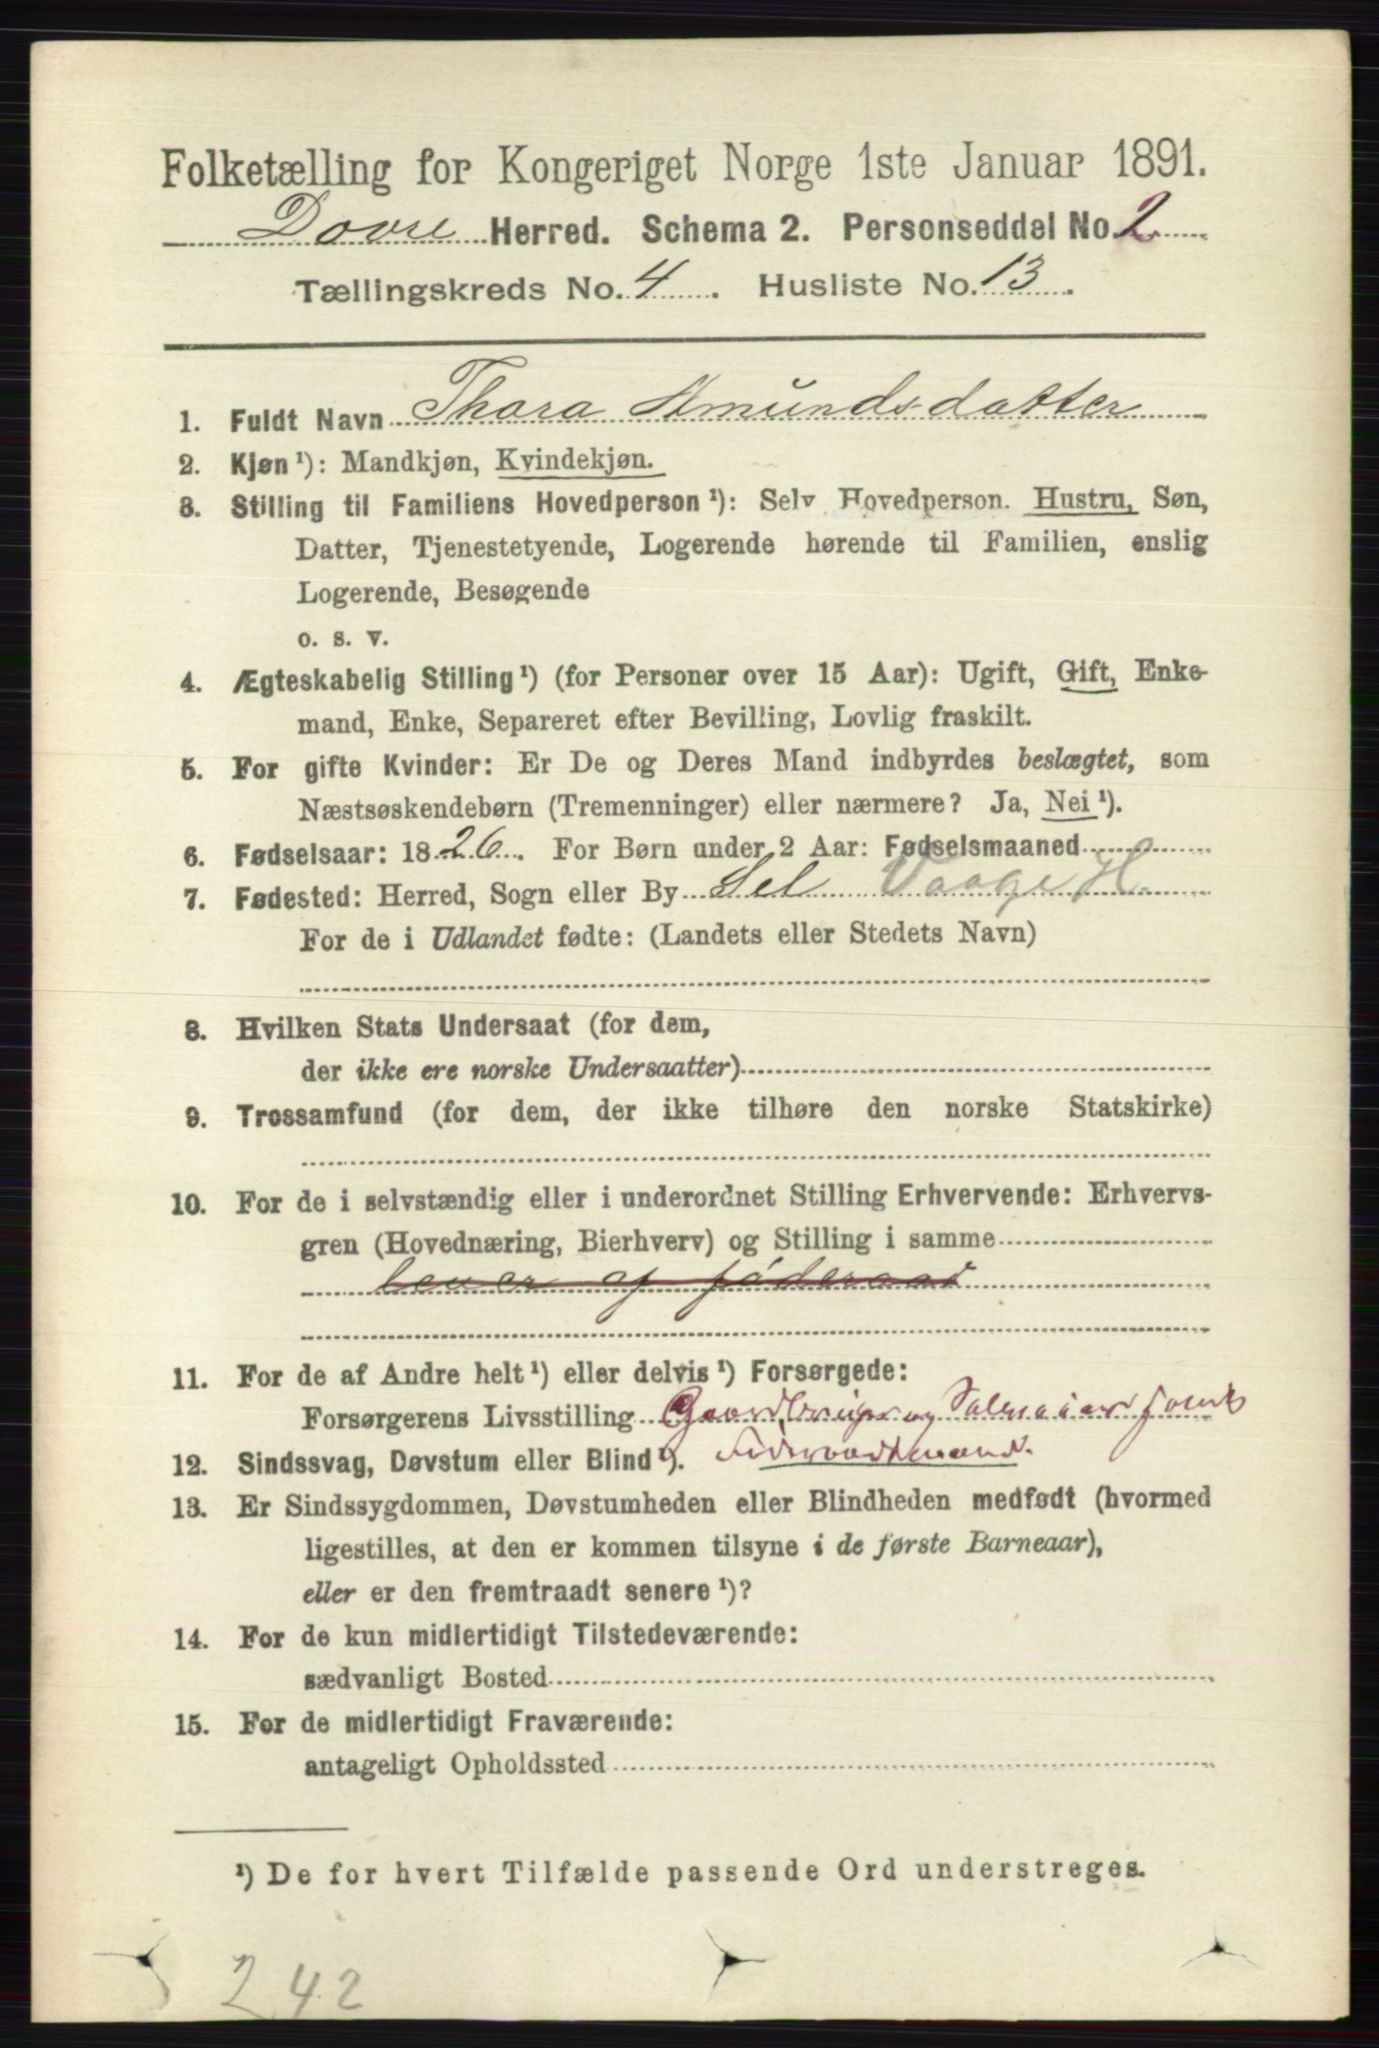 Folketælling for Kongeriget Norge 1ste Januar 1891.
Dovre Herred. Schema 2. Personseddel No. 2
Tællingskreds No. 4. Husliste No. 13.
1. Fuldt Navn Thora Amundsdatter
2. Kjøn ¹): Mandkjøn, Kvindekjøn.
3. Stilling til Familiens Hovedperson ¹): Selv Hovedperson. Hustru, Søn,
Datter, Tjenestetyende, Logerende hørende til Familien, enslig
Logerende, Besøgende
o. s. v.
4. Ægteskabelig Stilling ¹) (for Personer over 15 Aar): Ugift, Gift, Enke-
mand, Enke, Separeret efter Bevilling, Lovlig fraskilt.
5. For gifte Kvinder: Er De og Deres Mand indbyrdes beslægtet, som
Næstsøskendebørn (Tremenninger) eller nærmere? Ja, Nei ¹).
6. Fødselsaar: 1826. For Børn under 2 Aar: Fødselsmaaned
7. Fødested: Herred, Sogn eller By Sel Vaage H.
For de i Udlandet fødte: (Landets eller Stedets Navn)
8. Hvilken Stats Undersaat (for dem,
der ikke ere norske Undersaatter)
9. Trossamfund (for dem, der ikke tilhøre den norske Statskirke)
10. For de i selvstændig eller i underordnet Stilling Erhvervende: Erhvervs-
gren (Hovednæring, Bierhverv) og Stilling i samme
lever af föderaad
11. For de af Andre helt ¹) eller delvis ¹) Forsørgede:
Forsørgerens Livsstilling Gaardbruger og
12. Sindssvag, Døvstum eller Blind ¹). Föderaadsmand.
13. Er Sindssygdommen, Døvstumheden eller Blindheden medfødt (hvormed
ligestilles, at den er kommen tilsyne i de første Barneaar),
eller er den fremtraadt senere ¹)?
14. For de kun midlertidigt Tilstedeværende:
sædvanligt Bosted
15. For de midlertidigt Fraværende:
antageligt Opholdssted
¹) De for hvert Tilfælde passende Ord understreges.
242